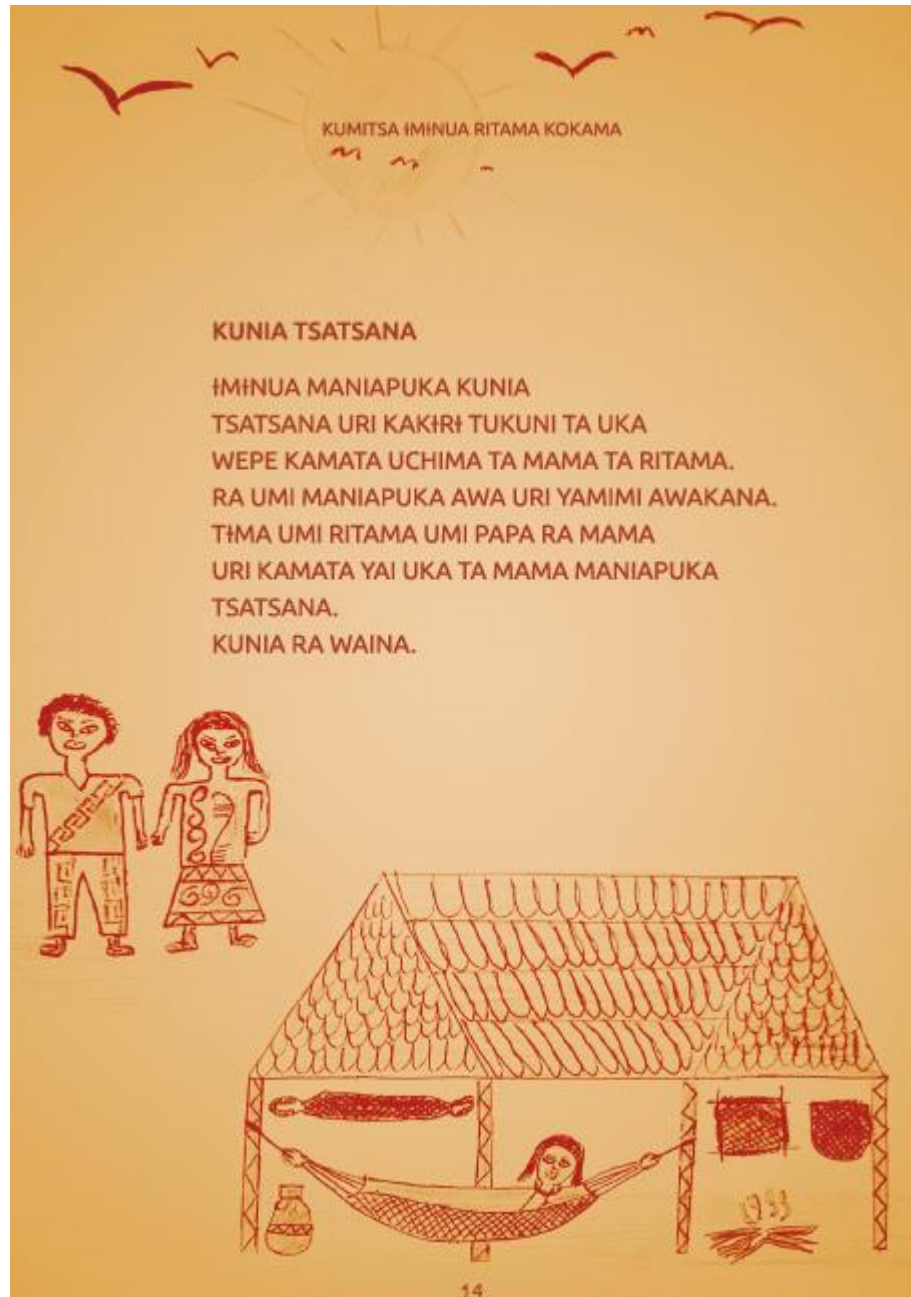 KUMITSA ɨMɨNUA RITAMA KOKAMA
KUNIA TSATSANA
ɨMɨNUA MANIAPUKA KUNIA
TSATSANA URI KAKɨRɨ TUKUNI TA UKA
WEPE KAMATA UCHIMA TA MAMA TA RITAMA.
RA UMI MANIAPUKA AWA URI YAMIMI AWAKANA.
TɨMA UMI RITAMA UMI PAPA RA MAMA
URI KAMATA YAI UKA TA MAMA MANIAPUKA
TSATSANA.
KUNIA RA WAINA.
14